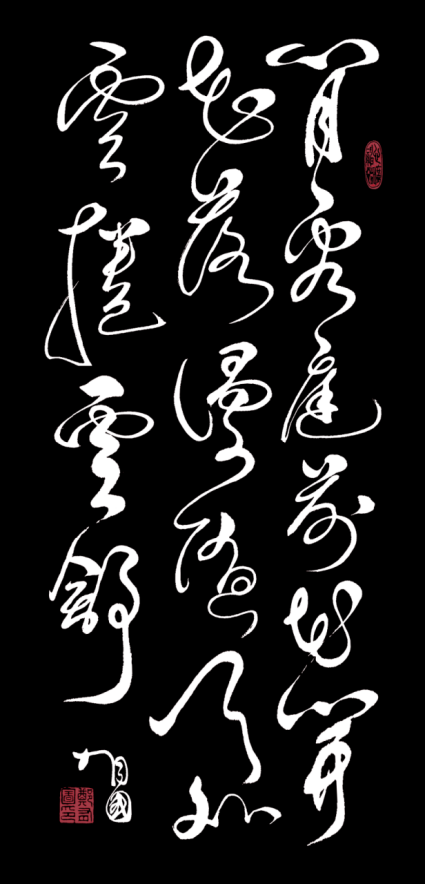 閒看庭前花開
花落漫隨天外
雲捲雲舒
有國